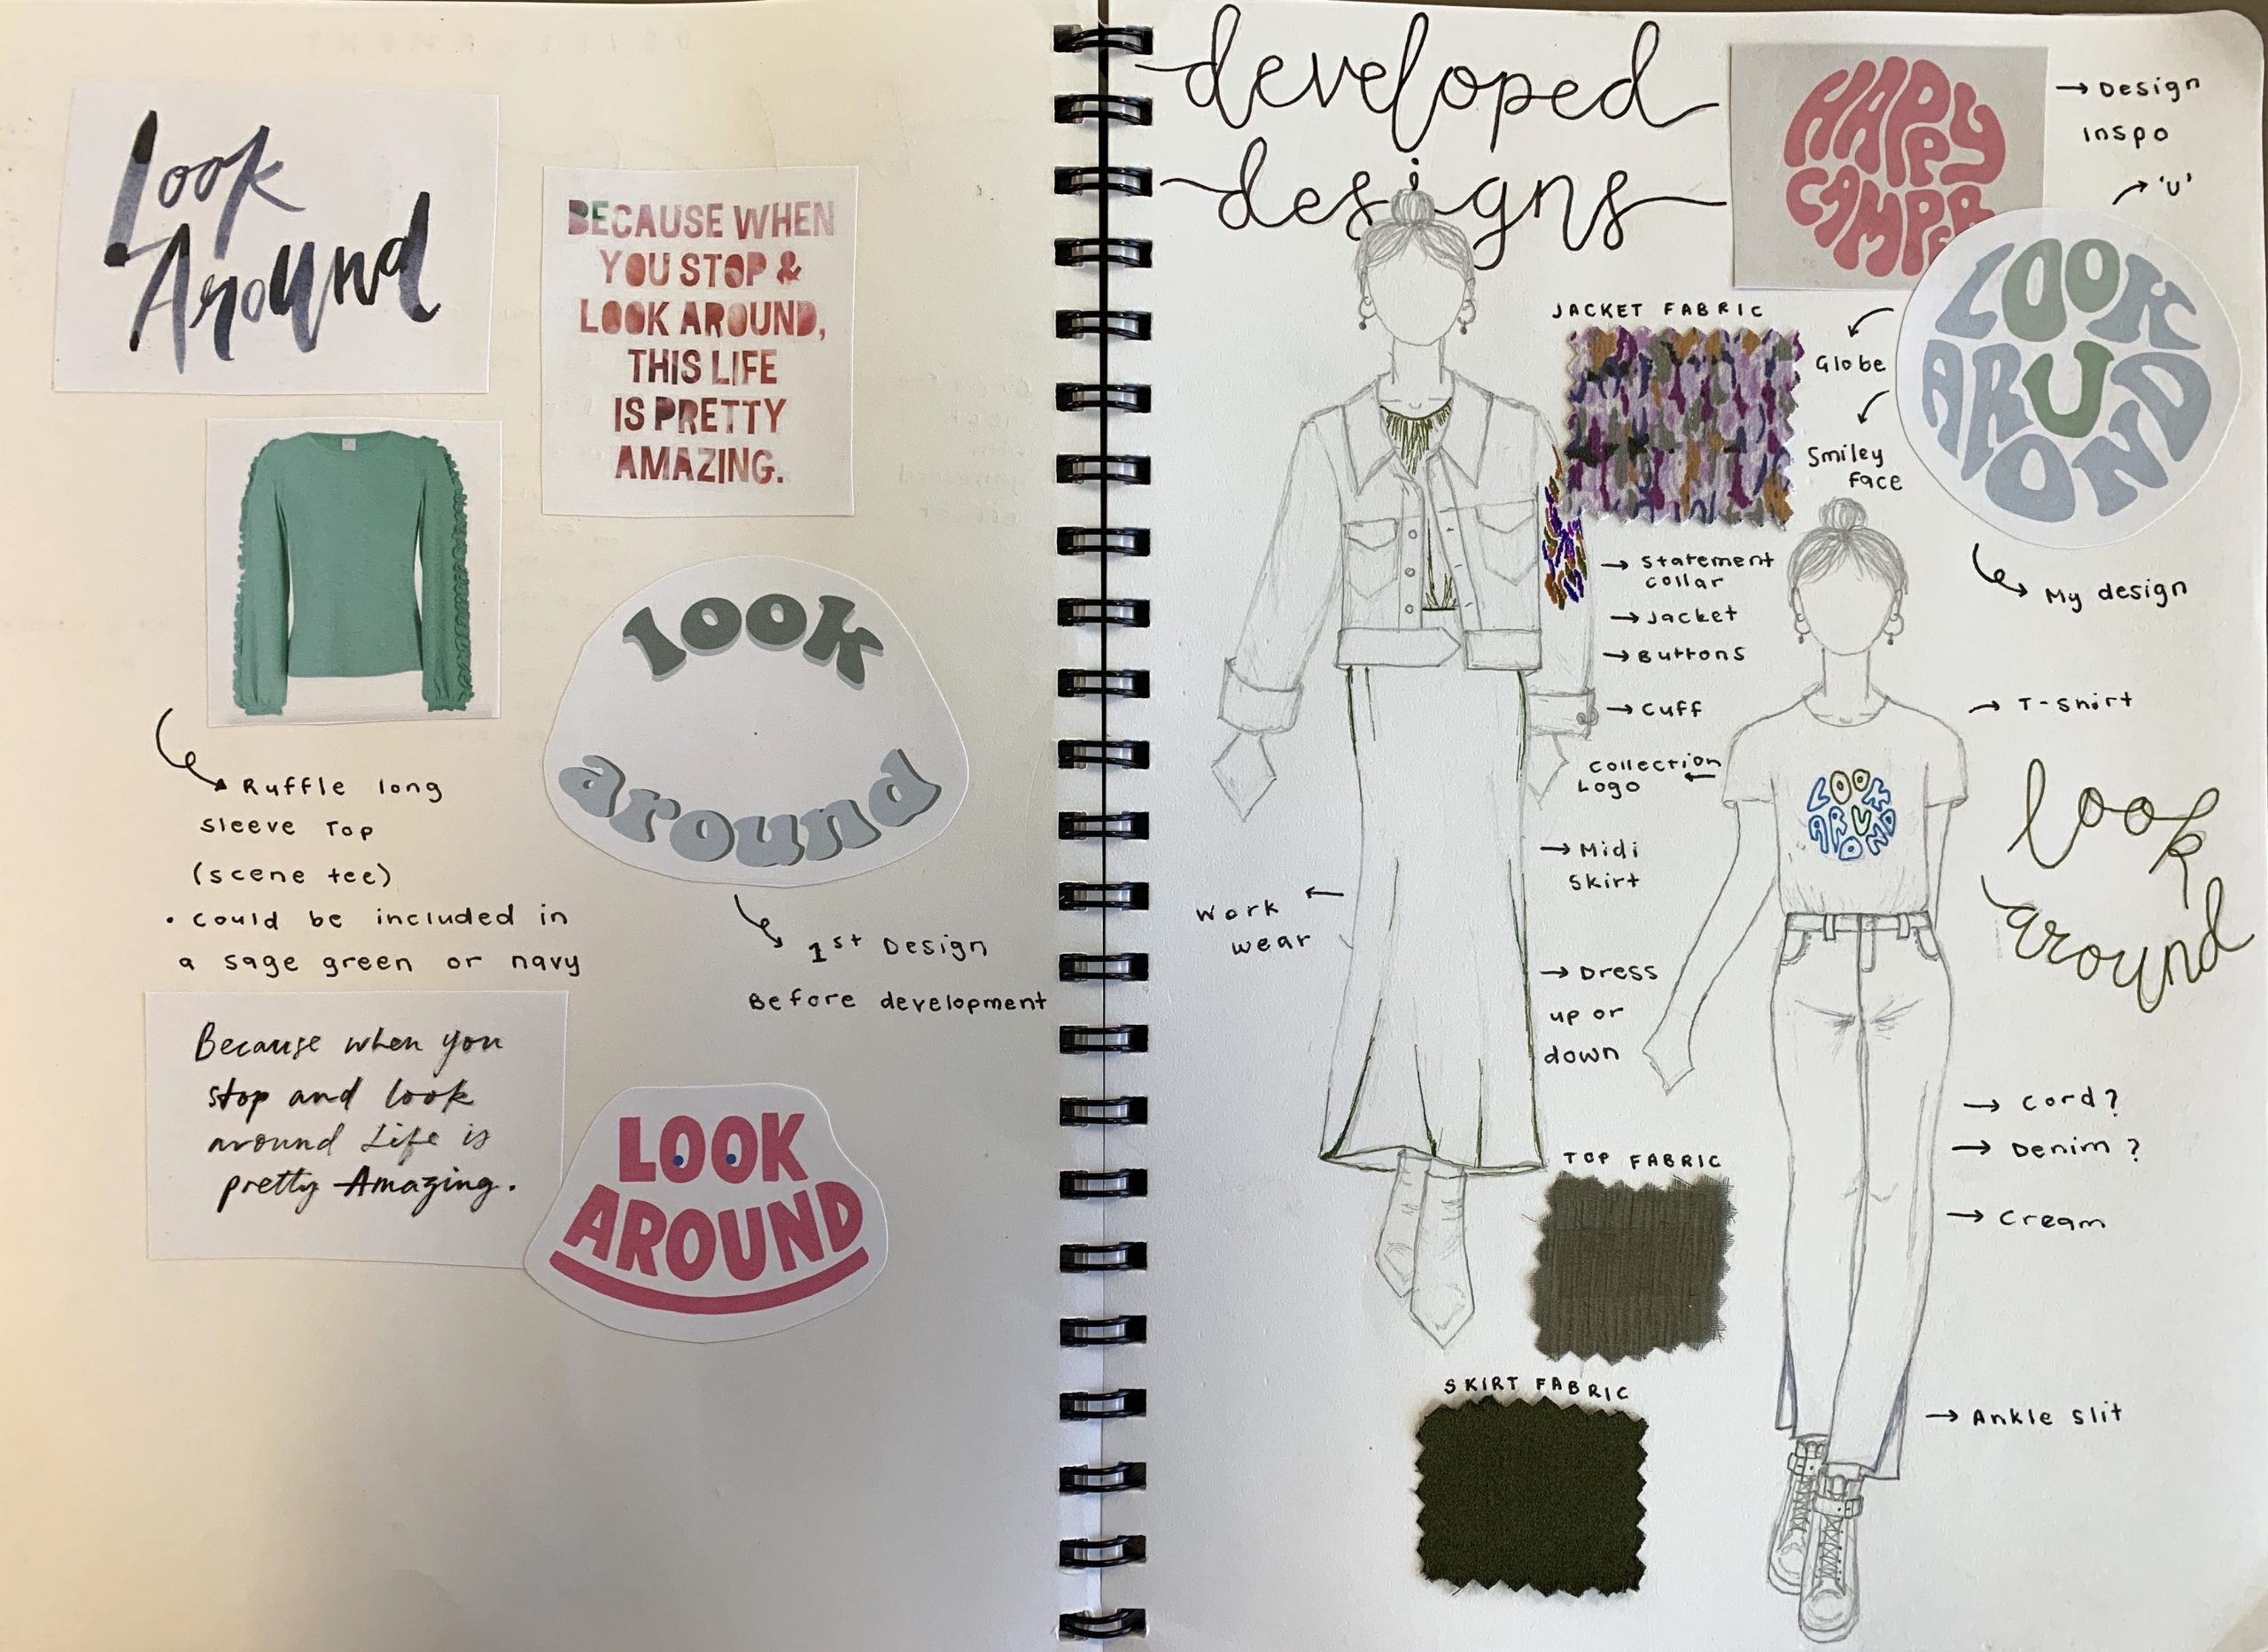 Look
Around
BECAUSE WHEN
YOU STOP &
LOOK AROUND,
THIS LIFE
IS PRETTY
AMAZING.
Ruffle long
sleeve Top
(scene tee)
• could be included in
a sage green or navy
look
around
1st Design
Before development
Because when you
stop and look
around Life is
pretty Amazing.
LOOK
AROUND
developed
designs
HAPPY
CAMPER
→ Design
inspo
'U'
LOOK
ARUND
OND
Globe
Smiley
Face
My design
JACKET FABRIC
→ Statement
collar
→ Jacket
→ Buttons
→ Cuff
Collection
Logo ←
→ Midi
Skirt
Work ←
wear
→ Dress
up or
down
TOP FABRIC
SKIRT FABRIC
→ T-shirt
LOOK
AROUND
look
around
→ Cord?
→ Denim?
→ Cream
→ Ankle slit